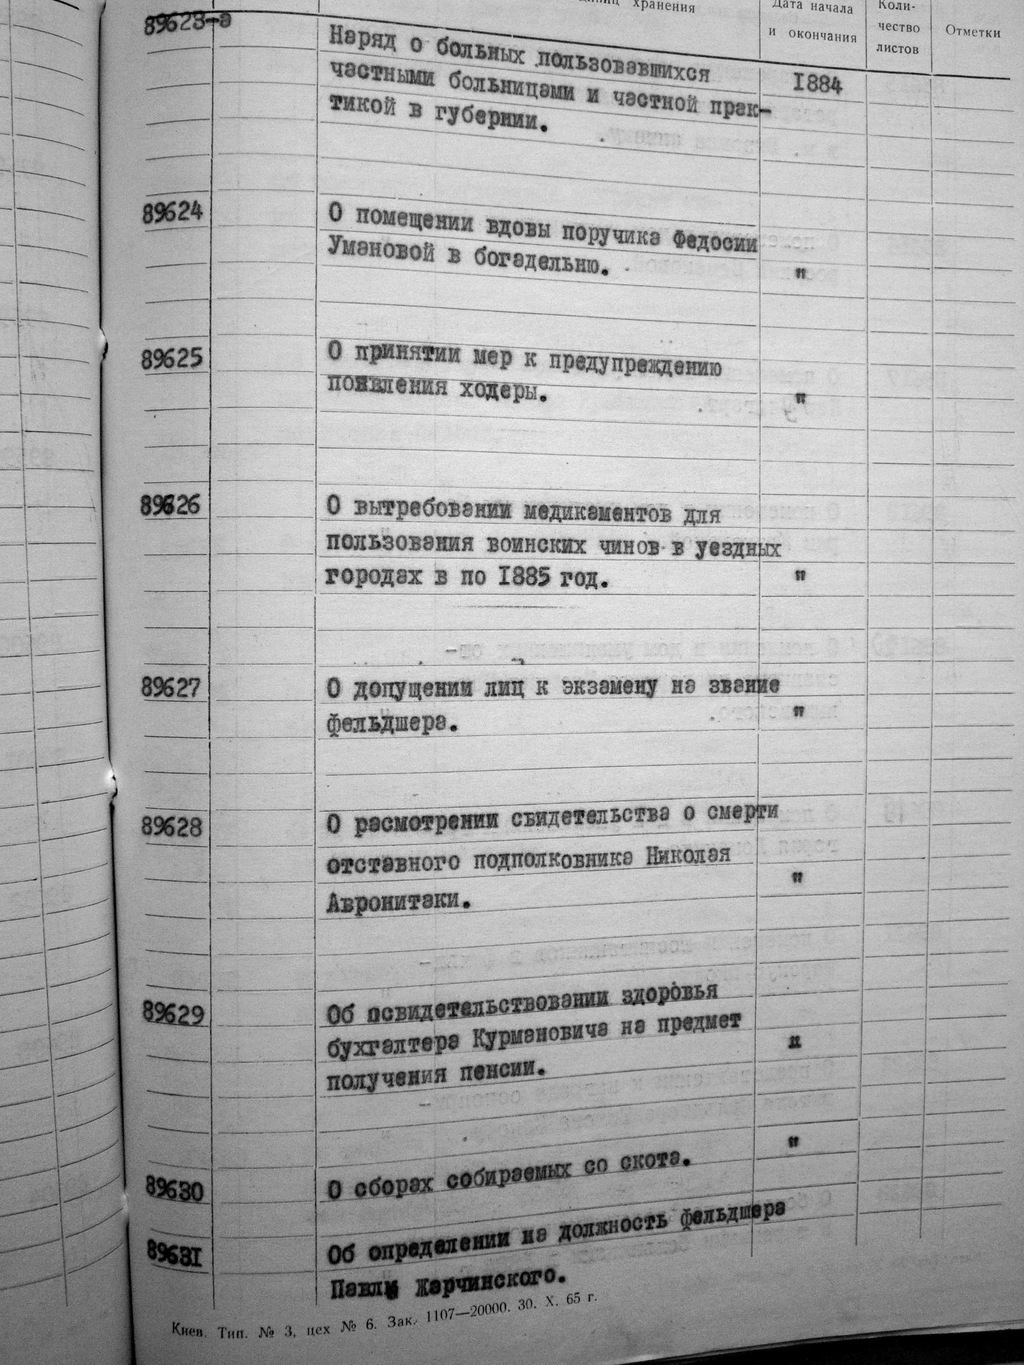 хранения
Дата начала
и окончания
Коли-
чество
листов
Отметки
89623-а
Наряд о больных пользовавшихся
1884
частными больницами и частной прак-
тикой в губернии.
89624
О помещении вдовы поручика Федосии
Умановой в богадельню.
"
89625
О принятии мер к предупреждению
появления холеры.
"
89626
О вытребовании медикаментов для
пользования воинских чинов в уездных
городах в по 1885 год.
"
89627
О допущении лиц к экзамену на звание
фельдшера.
"
89628
О расмотрении свидетельства о смерти
отставного подполковника Николая
"
Авронитаки.
89629
Об освидетельствовании здоровья
бухгалтера Курмановича на предмет
"
получения пенсии.
89630
О сборах собираемых со скота.
"
89631
Об определении на должность фельдшера
Павла Жарчинского.
Киев. Тип. № 3, цех № 6. Зак. 1107—20000. 30. X. 65 г.